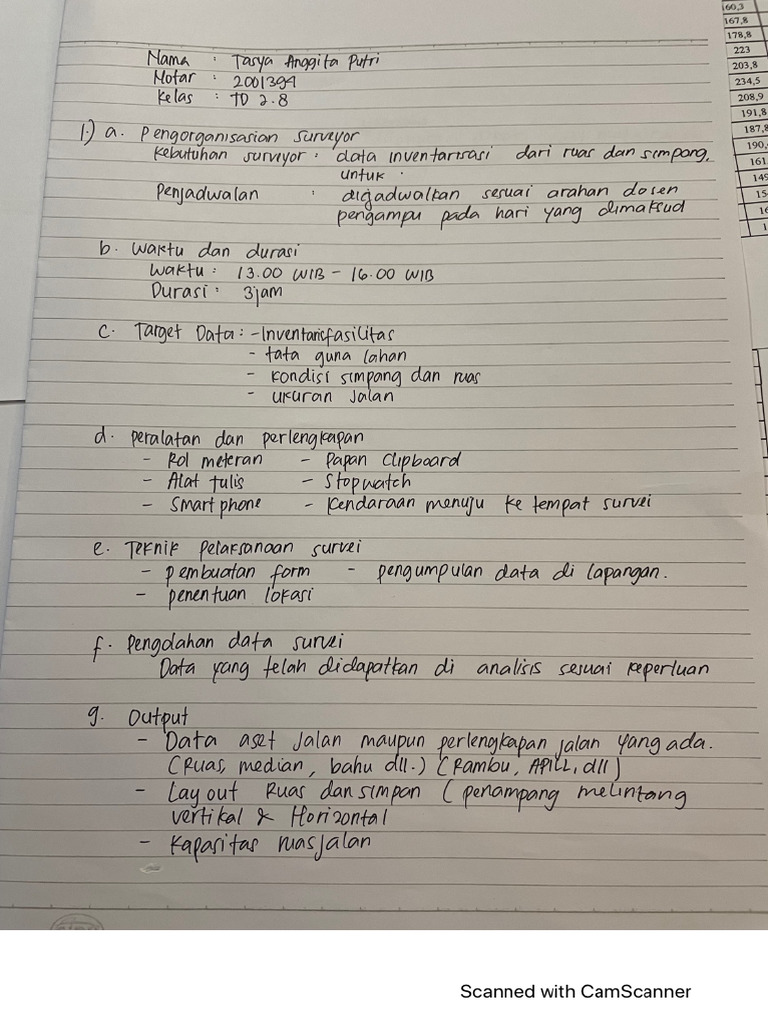 160,3
167,8
178,8
223
203,8
234,5
208,9
191,8
187,8
190,
161
149
15
16
1
Nama : Tasya Anggita Putri
Notar : 2001394
Kelas : TD 2.8
1.) a. Pengorganisasian Surveyor
Kebutuhan surveyor : data inventarisasi dari ruas dan simpang,
untuk .
Penjadwalan : dijadwalkan sesuai arahan dosen
pengampu pada hari yang dimaksud
b. Waktu dan durasi
Waktu : 13.00 WIB - 16.00 WIB
Durasi : 3 jam
c. Target Data : - Inventarisfasilitas
- tata guna lahan
- Kondisi simpang dan ruas
- ukuran jalan
d. peralatan dan perlengkapan
- Rol meteran - Papan Clipboard
- Alat tulis - Stopwatch
- Smartphone - Kendaraan menuju ke tempat survei
e. Teknik pelaksanaan survei
- pembuatan form - pengumpulan data di lapangan.
- penentuan lokasi
f. Pengolahan data survei
Data yang telah didapatkan di analisis sesuai keperluan
g. Output
- Data aset jalan maupun perlengkapan jalan yang ada.
(Ruas, median, bahu dll.) (Rambu, APILL, dll)
- Layout Ruas dan simpan (penampang melintang
vertikal & Horizontal
- Kapasitas ruas jalan
Scanned with CamScanner